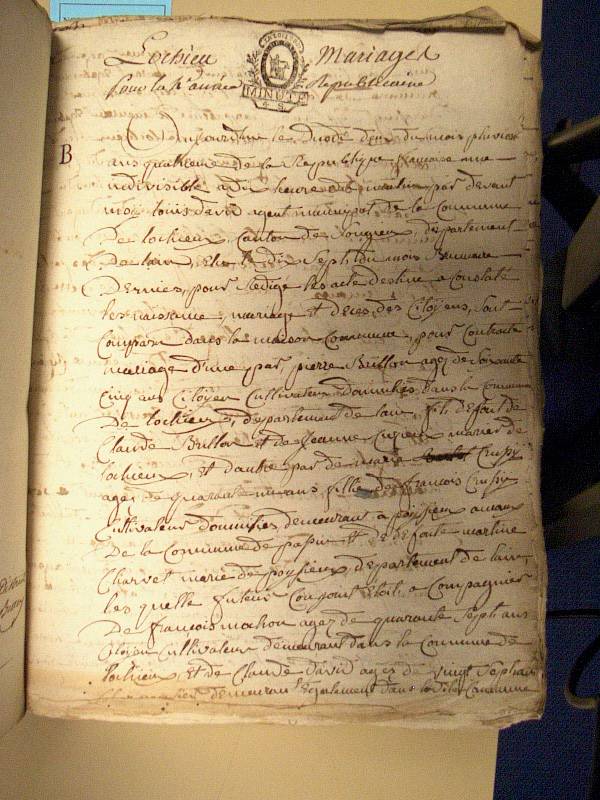 Lochieu Mariages
MINUTE
pour la 4e année Republicaine
B
Aujourdhuy le du mois pluviose
ans quatrieme de la Republique francaise une
indivisible a dix heure du matin par devant
moy Louis david agent municipal de la Commune
De lochieux, Canton de Songieu, departement
De lain, Elu le dix sept du mois Brumaire
Dernier, pour Redigé les acte destiné a Constaté
les naissance, mariage et deces des Citoyens, sont
Comparu dans la maison Commune, pour Contracté
mariage d'une part, pierre Brillon agez de soixante
cinq ans Citoyen Cultivateur domicilié dans la Commune
De lochieux, departement de lain, fils de fut de
Claude Brillon et de Jeanne marier de
lochieux, et dautre part de marie Crussy
agez de quarante ans fille de francois Crussy
Cultivateur domicilié demeurant a poysieu
De la Commune de et de defunte martine
Charvet marié de poysieux departement de lain,
les quelle futeur Conjoint Etoit a Compagnier
De francois mochon agez de quarante sept ans
Citoyen Cultivateur demeurant dans la Commune de
lochieux, et de Claude David agez de vingt sept ans
demeurant egalement dans la dite Commune